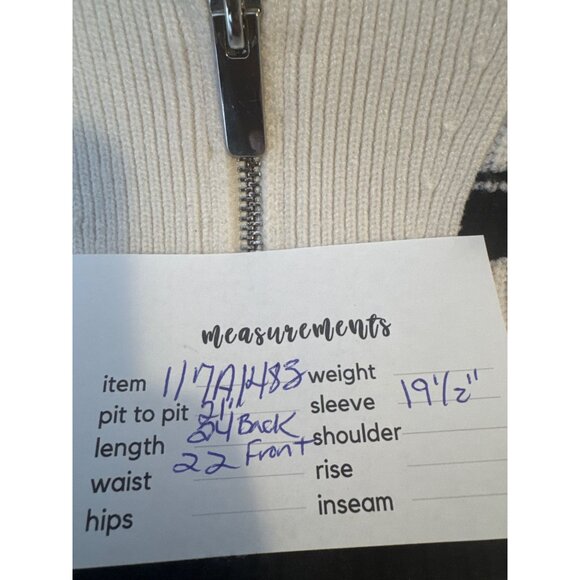 measurements
item 117A1483 weight
pit to pit 21" sleeve 19 1/2"
length 24 Back shoulder
waist 22 Front rise
hips inseam